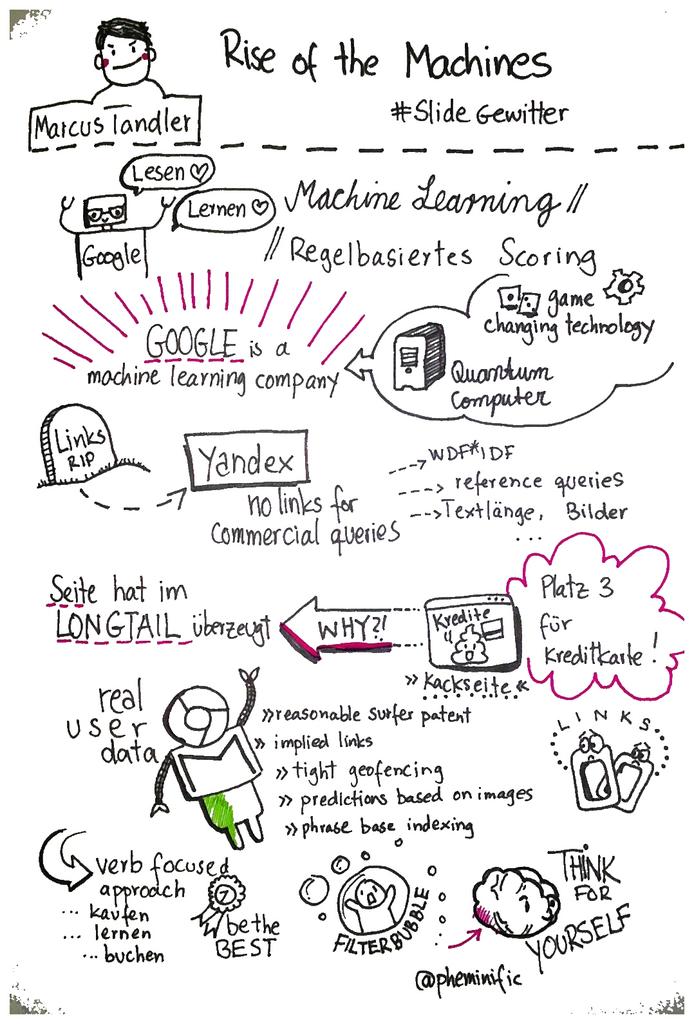 Rise of the Machines
#SlideGewitter
Marcus Tandler
Lesen ♡
Lernen ♡
Google
Machine Learning //
// Regelbasiertes Scoring
game
changing technology
Quantum
Computer
GOOGLE is a
machine learning company
Links
RIP
Yandex
no links for
commercial queries
WDF*IDF
reference queries
Textlänge, Bilder
...
Seite hat im
LONGTAIL überzeugt
WHY?!
Kredite
» Kackseite «
Platz 3
für
Kreditkarte!
real
user
data
» reasonable surfer patent
» implied links
» tight geofencing
» predictions based on images
» phrase base indexing
LINKS
verb focused
approach
... kaufen
... lernen
... buchen
be the
BEST
FILTERBUBBLE
THINK
FOR
YOURSELF
@pheminific